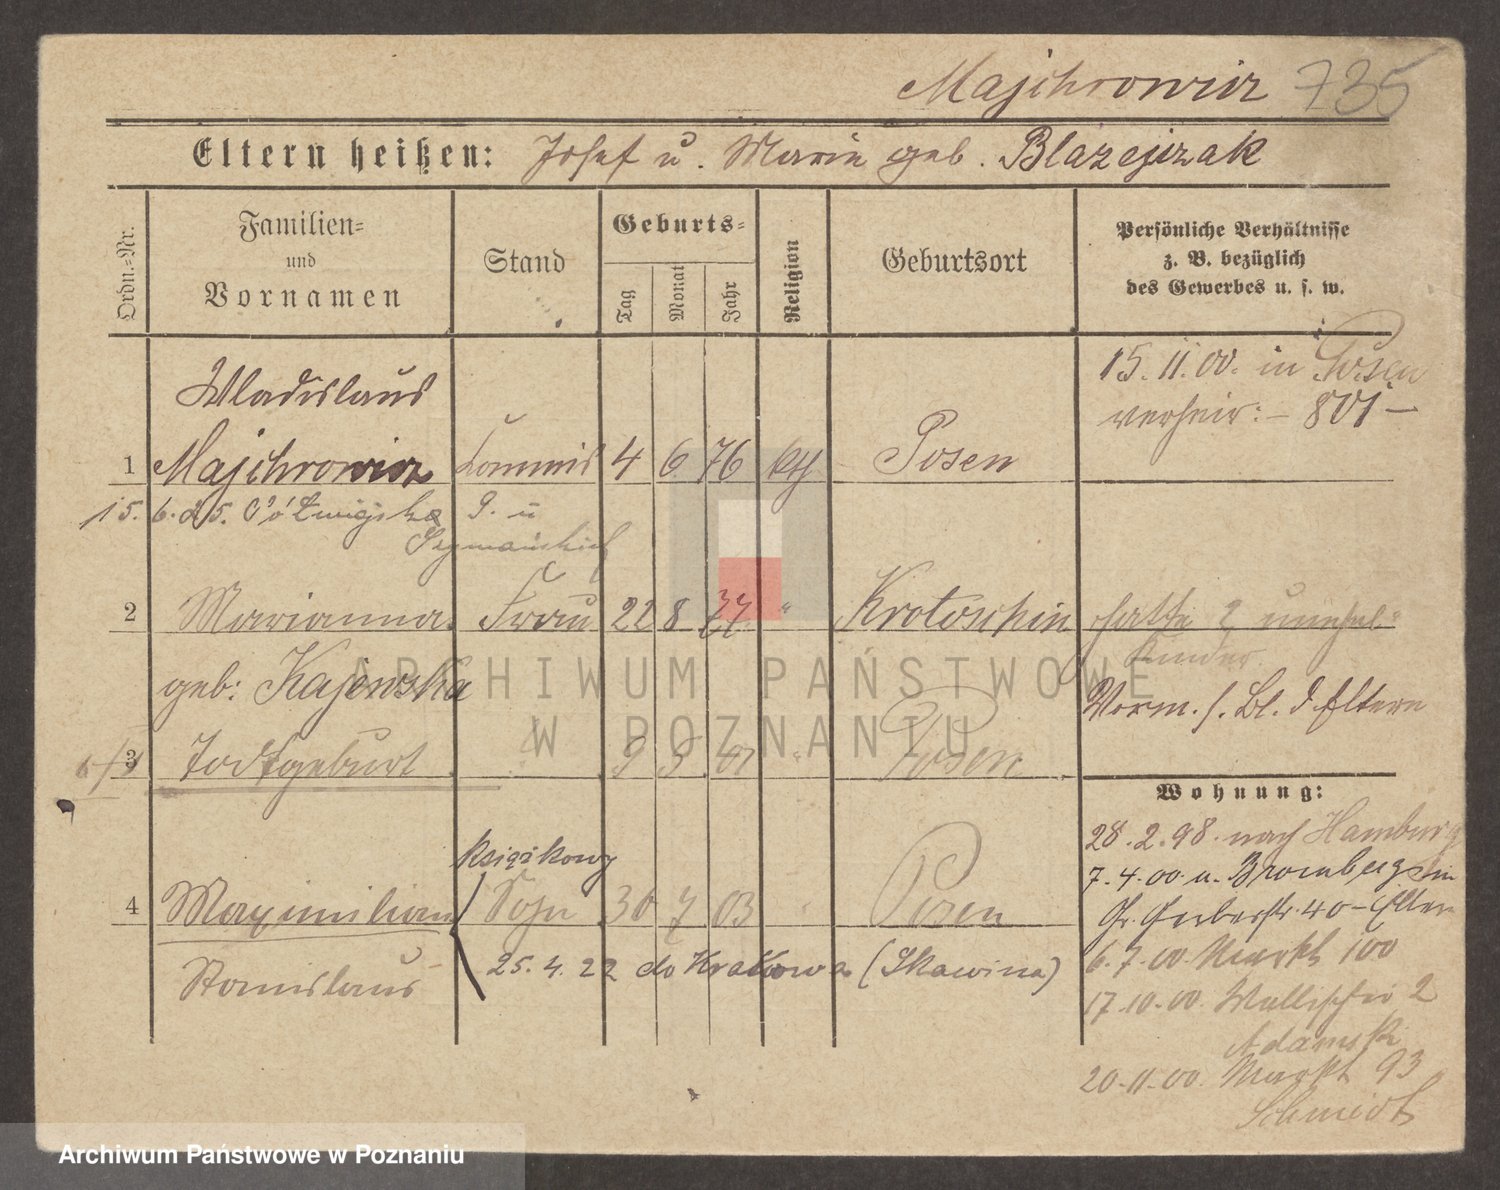 Majchrowicz 735
Eltern heißen: Josef u. Marie geb. Błażejczak
Ordn.-Nr.
Familien-
und
Vornamen
Stand
Geburts-
Tag
Monat
Jahr
Religion
Geburtsort
Persönliche Verhältnisse
z. B. bezüglich
des Gewerbes u. s. w.
Wladislaus
1 Majchrowicz Commis 4 6 76 kth Posen
15. 11. 00. in Posen
verheir: - 801 -
15. 6. 25.
Szymańskich
2 Marianna Frau 22 8 77 " Krotoschin
geb: Kajewska
hatte 2 unehel-
Kinder.
Vorm. s. Bl. d. Eltern
3 Todtgeburt 9 5 01 " Posen
książkowy
4 Maximilian Sohn 30 7 03 " Posen
Stanislaus
25. 4. 22 do Krakowa (Skawina)
Wohnung:
28. 2. 98. nach Hamburg
7. 4. 00 v. Bromberg
Gr. Gerberstr. 40 - Eltern
6. 7. 00 Markt 100
17. 10. 00. Wallischei 2
Adamski
20. 11. 00. Markt 93
Schmidt
ARCHIWUM PAŃSTWOWE
W POZNANIU
Archiwum Państwowe w Poznaniu